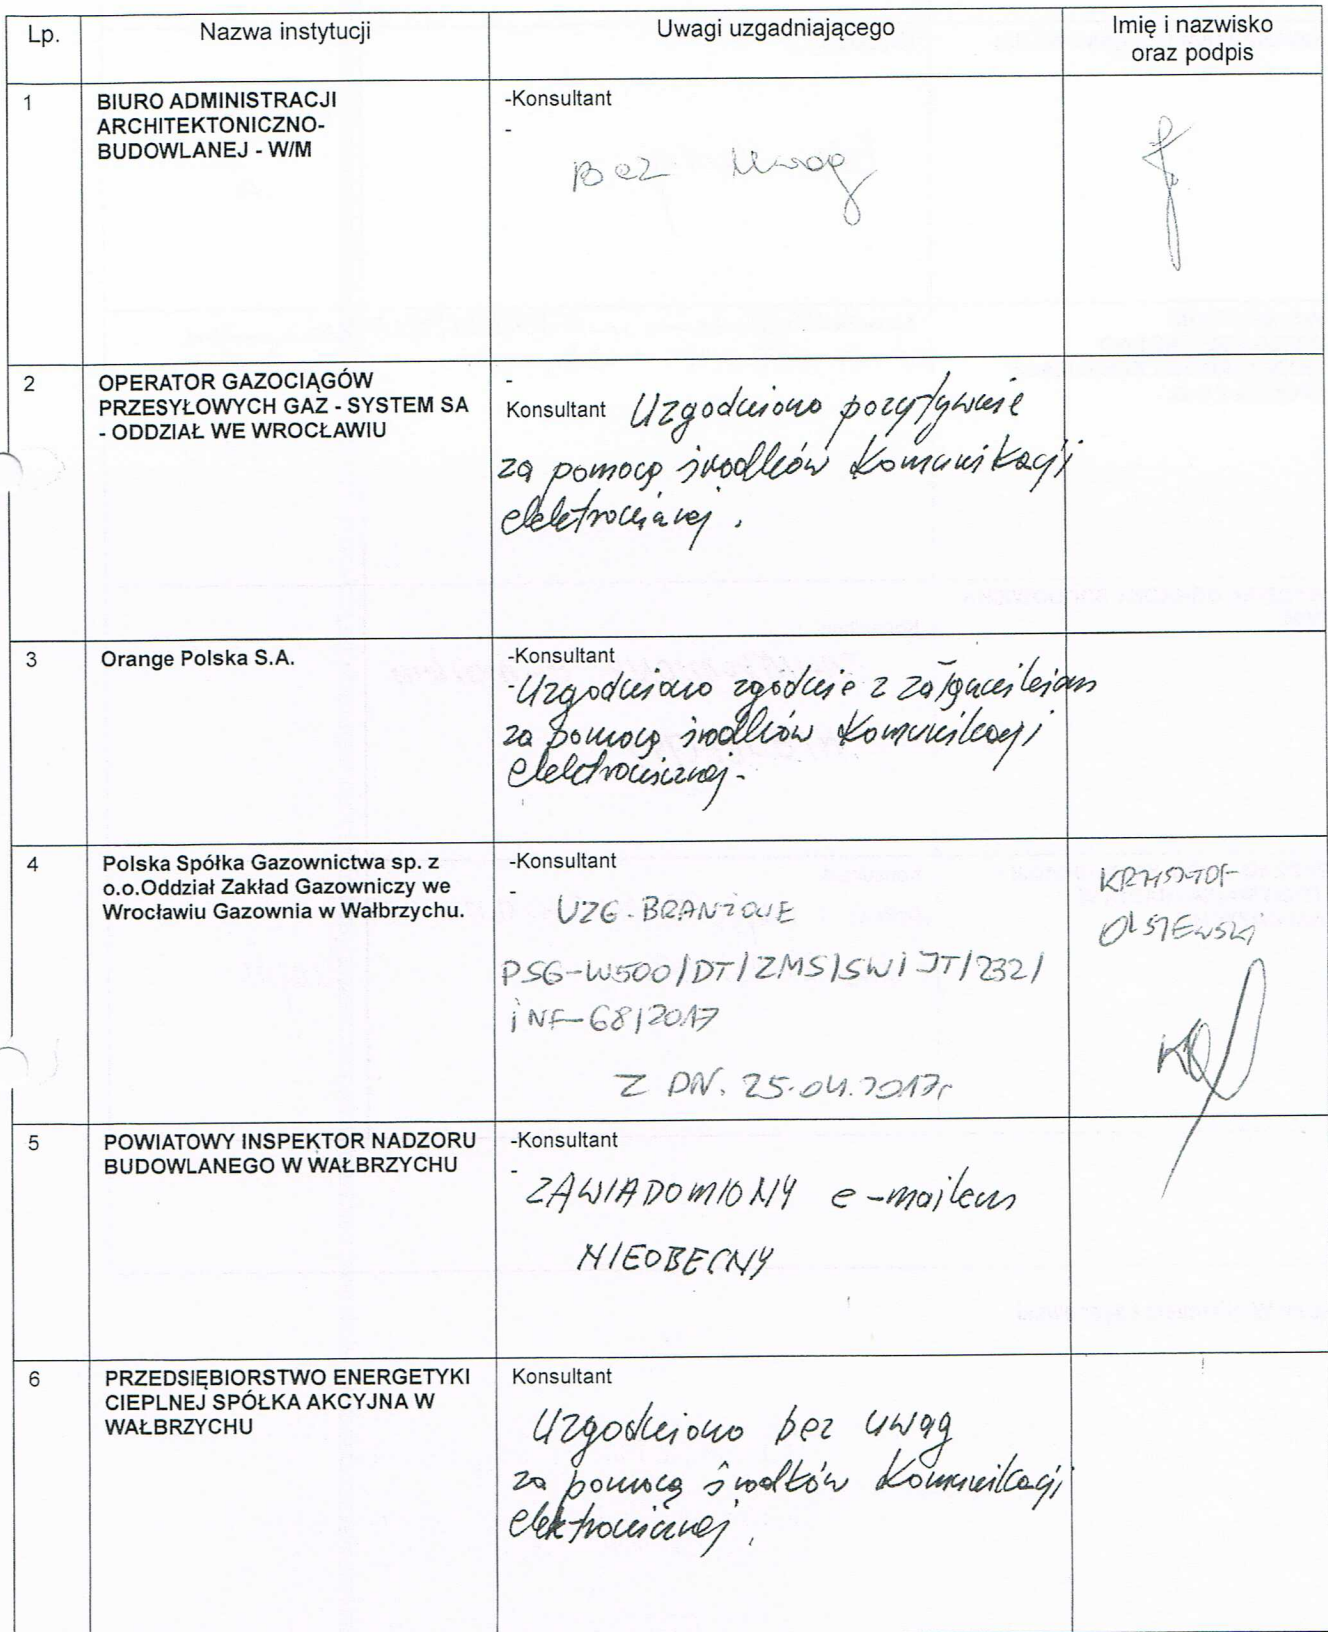 Lp.
Nazwa instytucji
Uwagi uzgadniającego
Imię i nazwisko
oraz podpis
1
BIURO ADMINISTRACJI
ARCHITEKTONICZNO-
BUDOWLANEJ - W/M
-Konsultant
-
Bez uwag
2
OPERATOR GAZOCIĄGÓW
PRZESYŁOWYCH GAZ - SYSTEM SA
- ODDZIAŁ WE WROCŁAWIU
-
Konsultant Uzgodniono pozytywnie
za pomocą środków komunikacji
elektronicznej.
3
Orange Polska S.A.
-Konsultant
-Uzgodniono zgodnie z załącznikiem
za pomocą środków komunikacji
elektronicznej.
4
Polska Spółka Gazownictwa sp. z
o.o.Oddział Zakład Gazowniczy we
Wrocławiu Gazownia w Wałbrzychu.
-Konsultant
-
UZG. BRANŻOWE
PSG-W500/DT/ZMS/SW/JT/232/
iNF-68/2017
Z DN. 25.04.2017r
KRZYSZTOF
OLSZEWSKI
KO
5
POWIATOWY INSPEKTOR NADZORU
BUDOWLANEGO W WAŁBRZYCHU
-Konsultant
-
ZAWIADOMIONY e-mailem
NIEOBECNY
6
PRZEDSIĘBIORSTWO ENERGETYKI
CIEPLNEJ SPÓŁKA AKCYJNA W
WAŁBRZYCHU
Konsultant
Uzgodniono bez uwag
za pomocą środków komunikacji
elektronicznej.